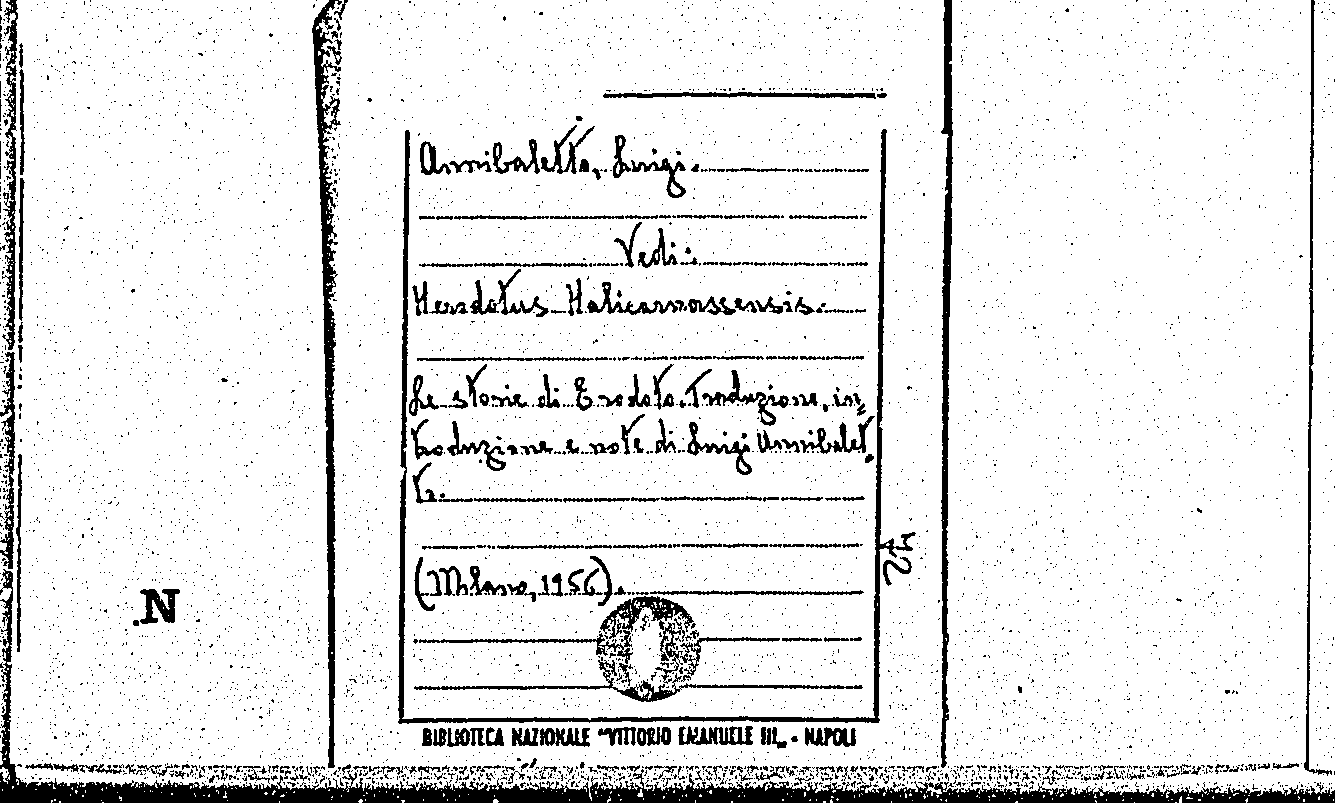 Annibaletto, Luigi.
Vedi:
Herodotus Halicarnassensis.
Le storie di Erodoto. Traduzione, in=
troduzione e note di Luigi Annibalet
to.
42
(Milano, 1956).
.N
BIBLIOTECA NAZIONALE "VITTORIO EMANUELE III„ - NAPOLI